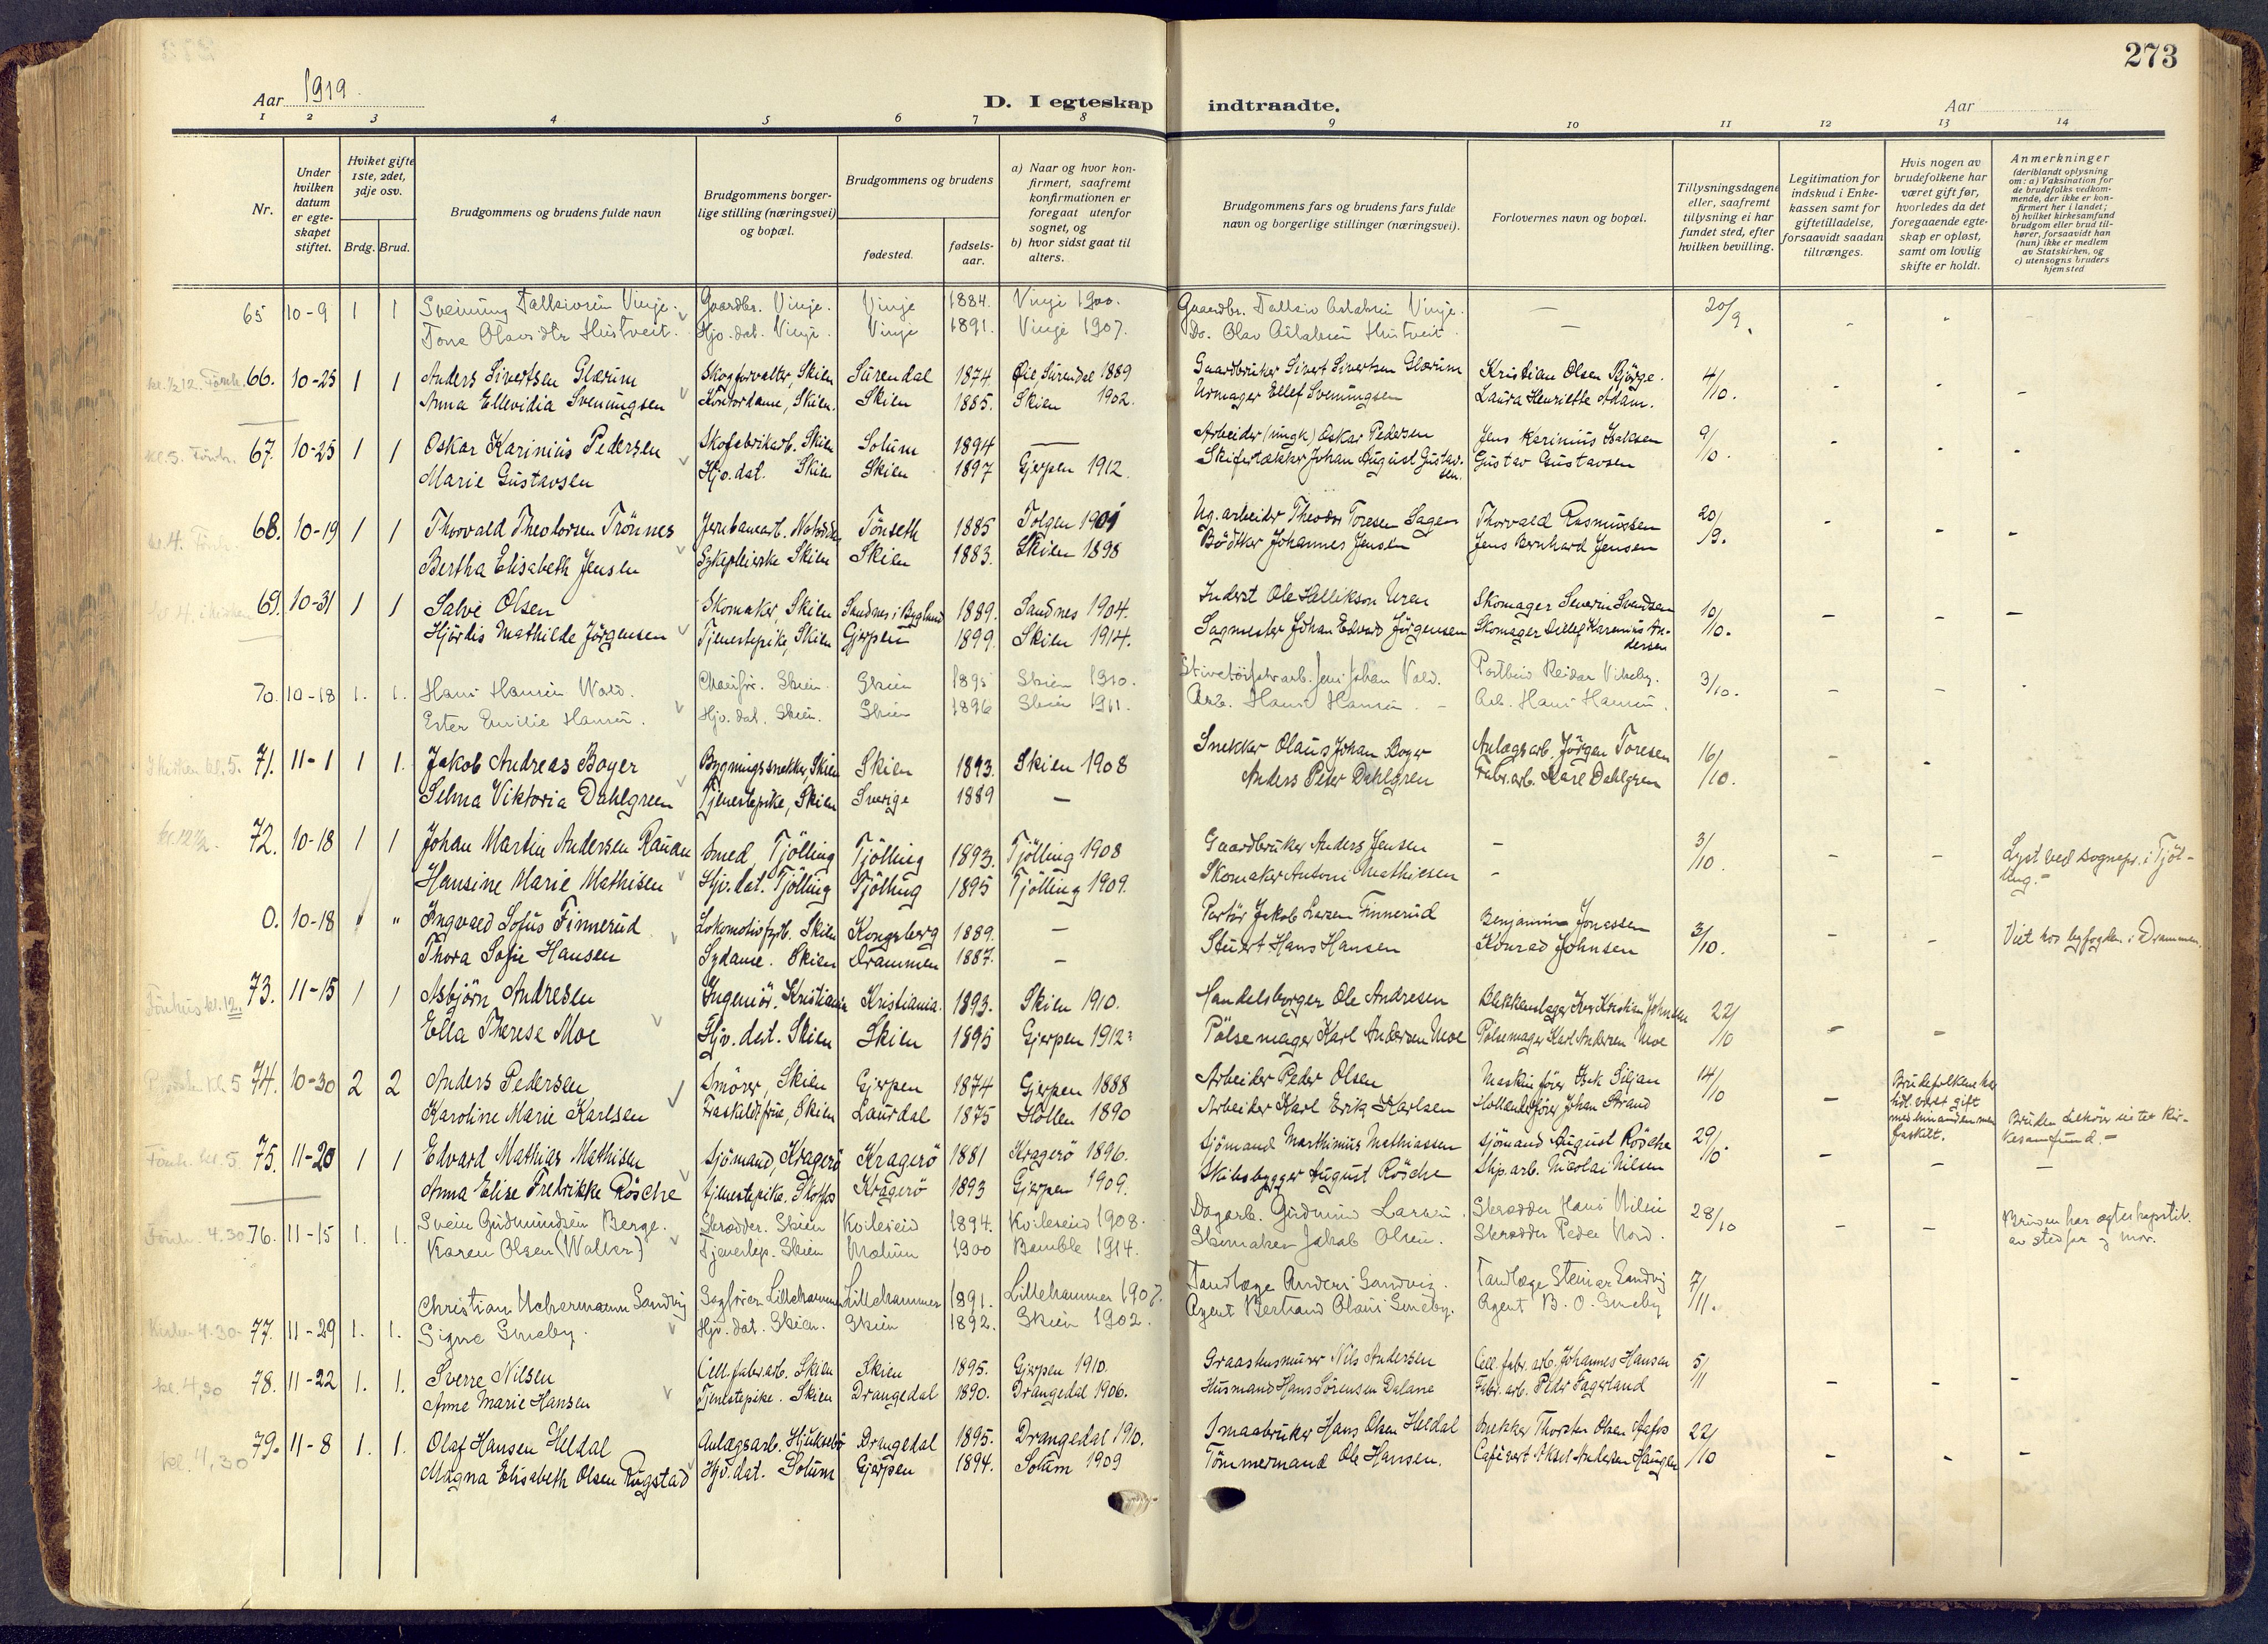 273
Aar 1919. D. I egteskap indtraadte. Aar
1 2 3 4 5 6 7 8 9 10 11 12 13 14
Nr.
Under hvilken datum er egteskapet stiftet.
Hviket gifte 1ste, 2det, 3dje osv.
Brdg. Brud.
Brudgommens og brudens fulde navn
Brudgommens borgerlige stilling (næringsvei) og bopæl.
Brudgommens og brudens
fødested.
fødselsaar.
a) Naar og hvor konfirmert, saafremt konfirmationen er foregaat utenfor sognet, og
b) hvor sidst gaat til alters.
Brudgommens fars og brudens fars fulde navn og borgerlige stillinger (næringsvei).
Forlovernes navn og bopæl.
Tillysningsdagene eller, saafremt tillysning ei har fundet sted, efter hvilken bevilling.
Legitimation for indskud i Enkekassen samt for giftetilladelse, forsaavidt saadan tiltrænges.
Hvis nogen av brudefolkene har været gift før, hvorledes da det foregaaende egteskap er opløst, samt om lovlig skifte er holdt.
Anmerkninger (deriblandt oplysning om: a) Vaksination for de brudefolks vedkommende, der ikke er konfirmert her i landet; b) hvilket kirkesamfund brudgom eller brud tilhører, forsaavidt han (hun) ikke er medlem av Statskirken, og c) utensogns bruders hjemsted
65 10-9 1 1 Sveinung Talleivsen Vinje. Gaardbr. Vinje. Vinje 1884. Vinje 1900. Gaardbr. Talleiv Aslaksen Vinje. — 20/9.
Tone Olavsdtr Hustveit. Hjv. dat. Vinje. Vinje 1891. Vinje 1907. Do. Olav Aslaksen Hustveit. —
kl. ½12. Fønh. 66. 10-25 1 1 Anders Sivertsen Glærum Skogforvalter, Skien Surendal 1874 Øie Surendal 1889 Gaardbruker Sivert Sivertsen Glærum Kristian Olsen Bjørge. 4/10.
Anna Ellevidia Sveningsen Kontordame, Skien. Skien 1885. Skien 1902. Urmager Ellef Sveningsen Laura Henriette Adam.
kl. 5. Fønh. 67. 10-25 1 1 Oskar Karinius Pedersen Skofabrikarb. Skien Solum 1894 — Arbeider (ungk) Oskar Pedersen Jens Karinius Isaksen 9/10.
Marie Gustavsen Hjv. dat. Skien Skien 1897 Gjerpen 1912. Skifertækker Johan August Gustavsen. Gustav Gustavsen
kl. 4. Fønh. 68. 10-19 1 1 Thorvald Theodorsen Trönnes Jernbanearb. Notodden Tönseth 1885 Tolgen 1901 Ug. arbeider Theodor Toresen Sagen Thorvald Rasmussen 20/9.
Bertha Elisabeth Jensen Sykepleierske Skien Skien 1883. Skien 1898 Bödtker Johannes Jensen Jens Bernhard Jensen
kl. 4. i kirken 69. 10-31 1 1 Salve Olsen Skomaker, Skien Sandnes i Bygland 1889. Sandnes 1904. Inderst Ole Hallikson Uren Skomager Severin Svendsen 10/10.
Hjördis Mathilde Jörgensen Tjenestepike, Skien Gjerpen 1899. Skien 1914. Sagmester Johan Edvard Jörgensen Skomager Dillef Karenius Andersen
70. 10-18 1. 1. Hans Hansen Wold. Chauffør. Skien. Skien 1895 Skien 1910. Jens Johan Vold. Postbud Reidar Vikeby. 3/10.
Ester Emilie Hansen. Hjv. dat. Skien. Skien 1896 Skien 1911. Arb. Hans Hansen. Arb. Hans Hansen.
I kirken kl. 5. 71. 11-1 1 1. Jakob Andreas Boyer Bygningssnekker, Skien Skien 1893. Skien 1908 Snekker Olaus Johan Boyer Anlægsarb. Jörgen Toresen 16/10.
Selma Viktoria Dahlgreen Tjenestepike, Skien Sverige 1889 — Anders Peter Dahlgren Fabr. arb. Karl Dahlgren
kl. 12½. 72. 10-18 1 1 Johan Martin Andersen Rauan Smed, Tjölling Tjölling 1893. Tjölling 1908 Gaardbruker Anders Jensen — 3/10 Lyst ved sognepr. i Tjölling.
Hansine Marie Mathisen Hjv. dat. Tjölling Tjölling 1895 Tjölling 1909. Skomaker Antoni Mathiesen —
0. 10-18 " " Ingvald Sofus Finnerud Lokomotivfyrb. Skien Kongsberg 1889. — Portör Jakob Larsen Finnerud Benjamin Jonassen 3/10. Viet hos byfogden i Drammen.
Thora Sofie Hansen Sydame. Skien Drammen 1887. — Stuert Hans Hansen Konrad Johnsen
Fönhus kl. 12. 73. 11-15 1 1 Asbjörn Andresen Ingeniör. Kristiania Kristiania. 1893. Skien 1910. Handelsborger Ole Andresen Blikkenslager Iver Kristian Johnsen 22/10
Ella Therese Moe Hjv. dat. Skien Skien 1895 Gjerpen 1912. Pölsemager Karl Andersen Moe Pölsemager Karl Andersen Moe
kl. 5 74. 10-30 2 2 Anders Pedersen Smörer, Skien Gjerpen 1874 Gjerpen 1888 Arbeider Peder Olsen Maskinförer Isak Siljan 14/10 Brudefolkene har tidl. været gift med hinanden men fraskilt.
Karoline Marie Karlsen Fraskildt frue, Skien Laurdal 1875 Hollen 1890 Arbeider Karl Erik Karlsen Hollenderförer Johan Strand Bruden tilhører intet kirkesamfund. —
Fönh. kl. 5. 75. 11-20 1 1 Edvard Mathias Mathisen Sjömand, Kragerö Kragerö 1881 Kragerö 1896. Sjömand Marthinius Mathiassen Sjömand August Rösche 29/10
Anna Elise Fredrikke Rösche Tjenestepike. Skotfos Kragerö 1893 Gjerpen 1909. Skibsbygger August Rösche Skip. arb. Nicolai Nilsen
Fönh. 4.30 76. 11-15 1. 1. Svein Gudmundsen Berge. Skrædder. Skien Kviteseid 1894. Kviteseid 1908. Dagarb. Gudmund Larsen. Skrædder Hans Nilsen 28/10 Bruden har ægteskapstil. av stedfar og mor.
Karen Olsen (Walker) Tjenestep. Skien Mælum 1900 Bamble 1914. Skomaker Jakob Olsen. Skrædder Peder Nord.
Christian Uchermann Sandvig Sagfører Lillehammer Lillehammer 1891. Lillehammer 1907. Tandlæge Anders Sandvig. Tandlæge Steinar Sandvig 7/11.
Kirken 4.30 77. 11-29 1. 1. Signe Smeby. Hjv. dat. Skien. Skien 1892. Skien 1902. Agent Bertrand Olaus Smeby. Agent B. O. Smeby
kl. 4,30 78. 11-22 1. 1. Sverre Nilsen Cell. fabr. arb. Skien Skien 1895. Gjerpen 1910. Graastensmurer Nils Andersen Cell. fabr. arb. Johannes Hansen 5/11
Anne Marie Hansen Tjenestepike. Skien Drangedal 1890. Drangedal 1906. Husmand Hans Sörensen Dalane Fabr. arb. Peder Fagerland
kl. 4,30 79. 11-8 1. 1. Olaf Hansen Heldal Anlægsarb. Hjuksebö Drangedal 1895. Drangedal 1910. Smaabruker Hans Olsen Heldal Snekker Thorsten Olsen Aafos 22/10
Magna Elisabeth Olsen Rugstad Hjv. dat. Solum Gjerpen 1894. Solum 1909 Tömmermand Ole Hansen. Cafévert Aksel Andersen Haugen